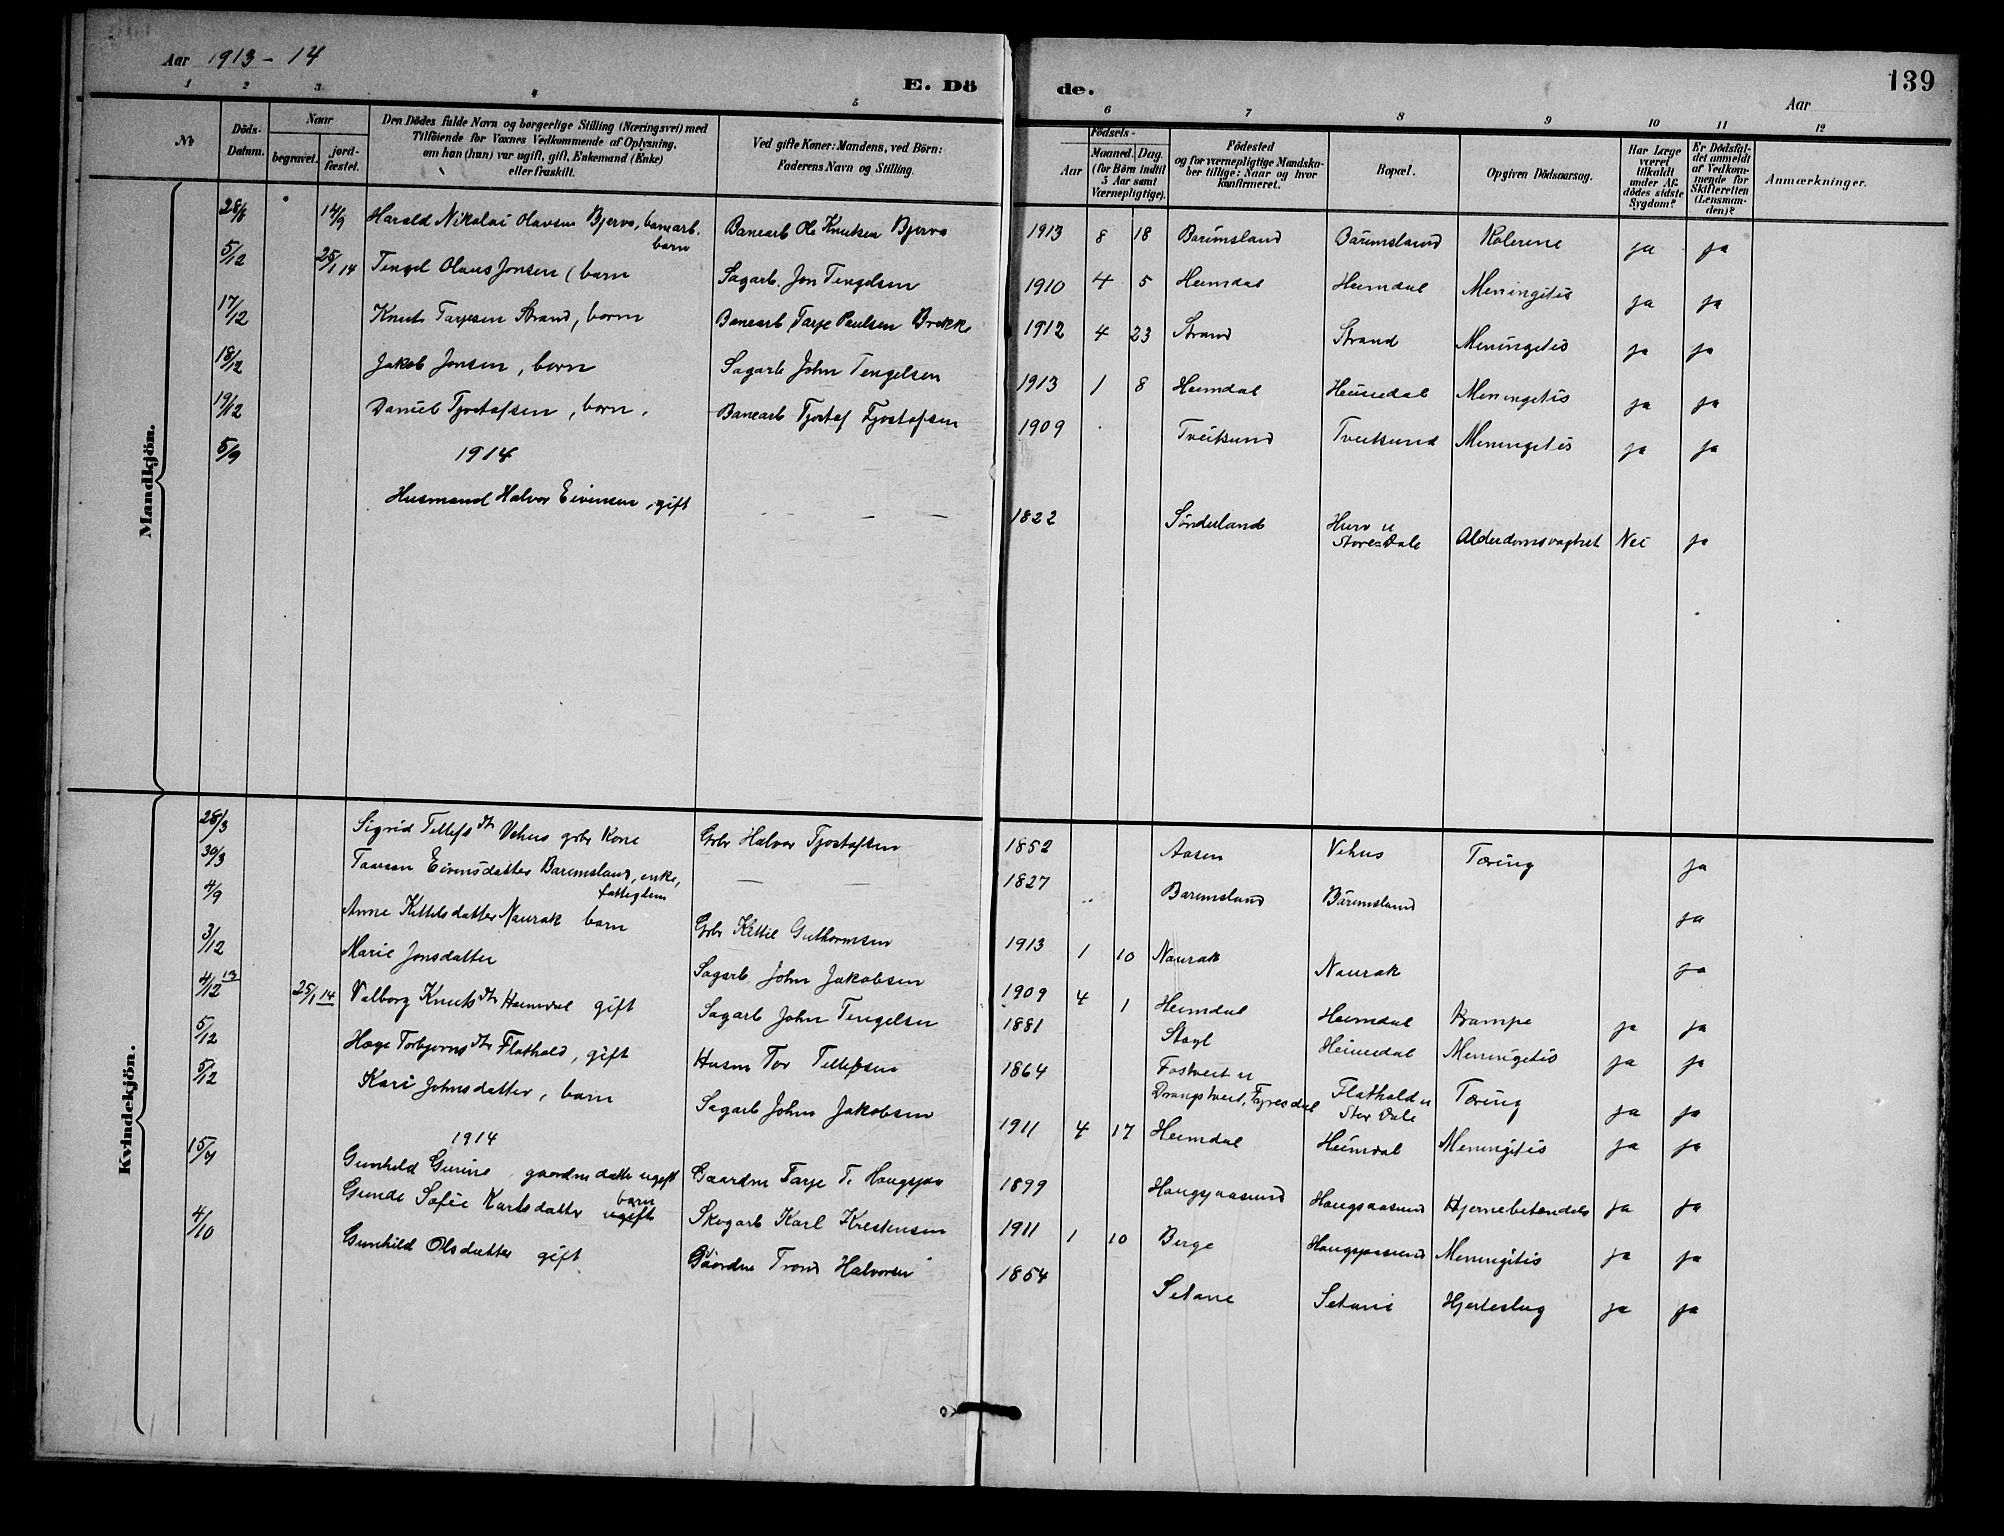 Aar 1913-14
E. Dö
de.
139
Aar
1 2 3 4 5 6 7 8 9 10 11 12
No
Döds-Datum.
Naar
begravet.
jord-fæstet.
Den Dödes fulde Navn og borgerlige Stilling (Næringsvei) med
Tilföiende for Voxnes Vedkommende af Oplysning,
om han (hun) var ugift, gift, Enkemand (Enke)
eller fraskilt.
Ved gifte Koner: Mandens, ved Börn:
Faderens Navn og Stilling.
Födsels-
Aar
Maaned. Dag.
(for Börn indtil
5 Aar samt
Værnepligtige).
Födested
og for værnepligtige Mandska-
ber tillige: Naar og hvor
konfirmeret.
Bopæl.
Opgiven Dödsaarsag.
Har Læge
været
tilkaldt
under Af-
dödes sidste
Sygdom?
Er Dödsfal-
det anmeldt
af Vedkom-
mende for
Skifteretten
(Lensman-
den)?
Anmærkninger.
Mandkjön.
28/8 14/9 Harald Nikolai Olavsen Bjervo, banearb. barn Banearb Ole Knutsen Bjervo 1913 8 18 Barimsland Barimsland Kolerine ja ja
5/12 25/1 14 Tengel Olaus Jonsen (barn Sagarb. Jon Tengelsen 1910 4 5 Heimdal Heimdal Meningitis ja ja
17/12 Knut Tarjesen Strand, barn Banearb Tarje Paulsen Brekke 1912 4 23 Strand Strand Meningitis ja ja
18/12 Jakob Jonsen, barn Sagarb John Tengelsen 1913 1 8 Heimdal Heimdal Meningitis ja ja
19/12 Daniel Tjostafsen, barn, Banearb Tjostaf Tjostafsen 1909 Tveitsund Tveitsund Meningitis ja ja
1914
5/9 Husmand Halvor Eivensen, gift — — — 1822 Sönderland Hurv u Store Dale Alderdomsvaghet Nei ja
Kvindekjön.
28/3 Sigrid Tellefsdtr Vehus grbr Kone Grbr Halvor Tjostafsen 1852 Aasen Vehus Tæring ja
30/3 Taaraan Eivensdatter Barimsland, enke, fattiglem — — 1827 Barimsland Barimsland ja
4/9 Anne Kittilsdatter Naurak barn Grbr Kittil Guthormsen 1913 1 10 Naurak Naurak ja
3/12 Marie Jonsdatter Sagarb John Jakobsen 1909 4 1 Heimdal Heimdal Krampe ja ja
4/12 13 25/1 14 Valborg Knutsdtr Heimdal gift Sagarb John Tengelsen 1881 Heimdal Meningitis ja ja
5/12 Hæge Torbjørnsdtr Flathold, gift Husm Tor Tellefsen 1864 Fostveit u Drangstveit, Fyresdal Flathold u Stor Dale Tæring ja ja
5/12 Kari Johnsdatter, barn Sagarb John Jakobsen 1911 4 17 Heimdal Heimdal Meningitis ja ja
1914
15/7 Gunhild Gurine, gaardm datter ugift Gaardm Tarje T. Haugsjaa 1899 Haugsjaasund Haugsjaasund Hjernebetendelse ja ja
Gunde Sofie Karlsdatter barn ugift Skogarb Karl Kristensen 1911 1 10 Berge Haugsjaasund Meningitis ja ja
4/10 Gunhild Olsdatter gift Gaardm Trond Halvorsen 1854 Setane Setane Hjerteslag ja ja